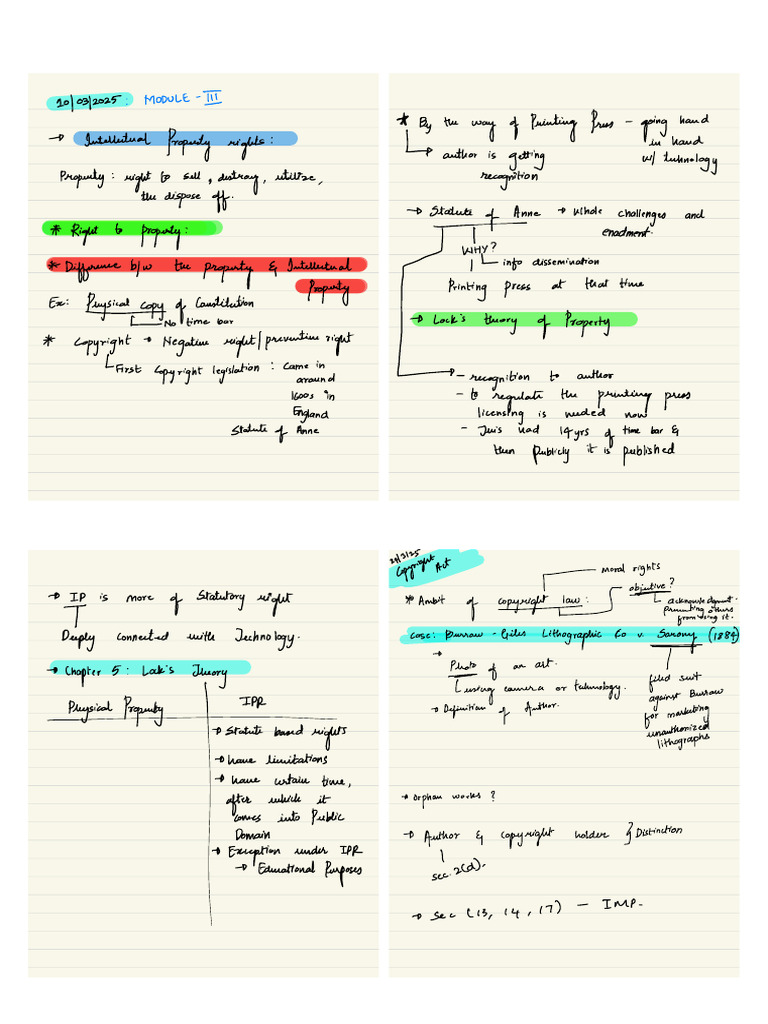 20/03/2025: MODULE - III
→ Intellectual Property rights:
Property: right to sell, destroy, utilize,
the dispose off.
* Right to property:
* Difference b/w the property & Intellectual
Property
Ex: Physical copy of Constitution
No time bar
* Copyright → Negative right/preventive right
First Copyright legislation: Came in
around
1600s in
England
Statute of Anne
* By the way of Printing Press - going hand
in hand
w/ technology
author is getting
recognition
→ Statute of Anne → Whole challenges and
enactment.
WHY?
info dissemination
Printing press at that time
→ Lock's theory of Property
- recognition to author
- to regulate the printing press
licensing is needed now
- had 14yrs of time bar &
then publicly it is published
→ IP is more of Statutory right
Deeply connected with Technology.
→ Chapter 5: Lock's Theory
Physical Property
IPR
→ Statute based rights
→ have limitations
→ have certain time,
after which it
comes into Public
Domain
→ Exception under IPR
→ Educational Purposes
/25
Copyright Act
moral rights
* Ambit of copyright law:
objective?
acknowledgment.
preventing others
from using it.
Case: Burrow-Giles Lithographic Co v. Sarony (1884)
→
Photo of an art.
using camera or technology.
→ Definition of Author.
filed suit
against Burrow
for marketing
unauthorized
lithographs
→ Orphan works?
→ Author & copyright holder } Distinction
sec. 2(d).
→ sec (13, 14, 17) - IMP.